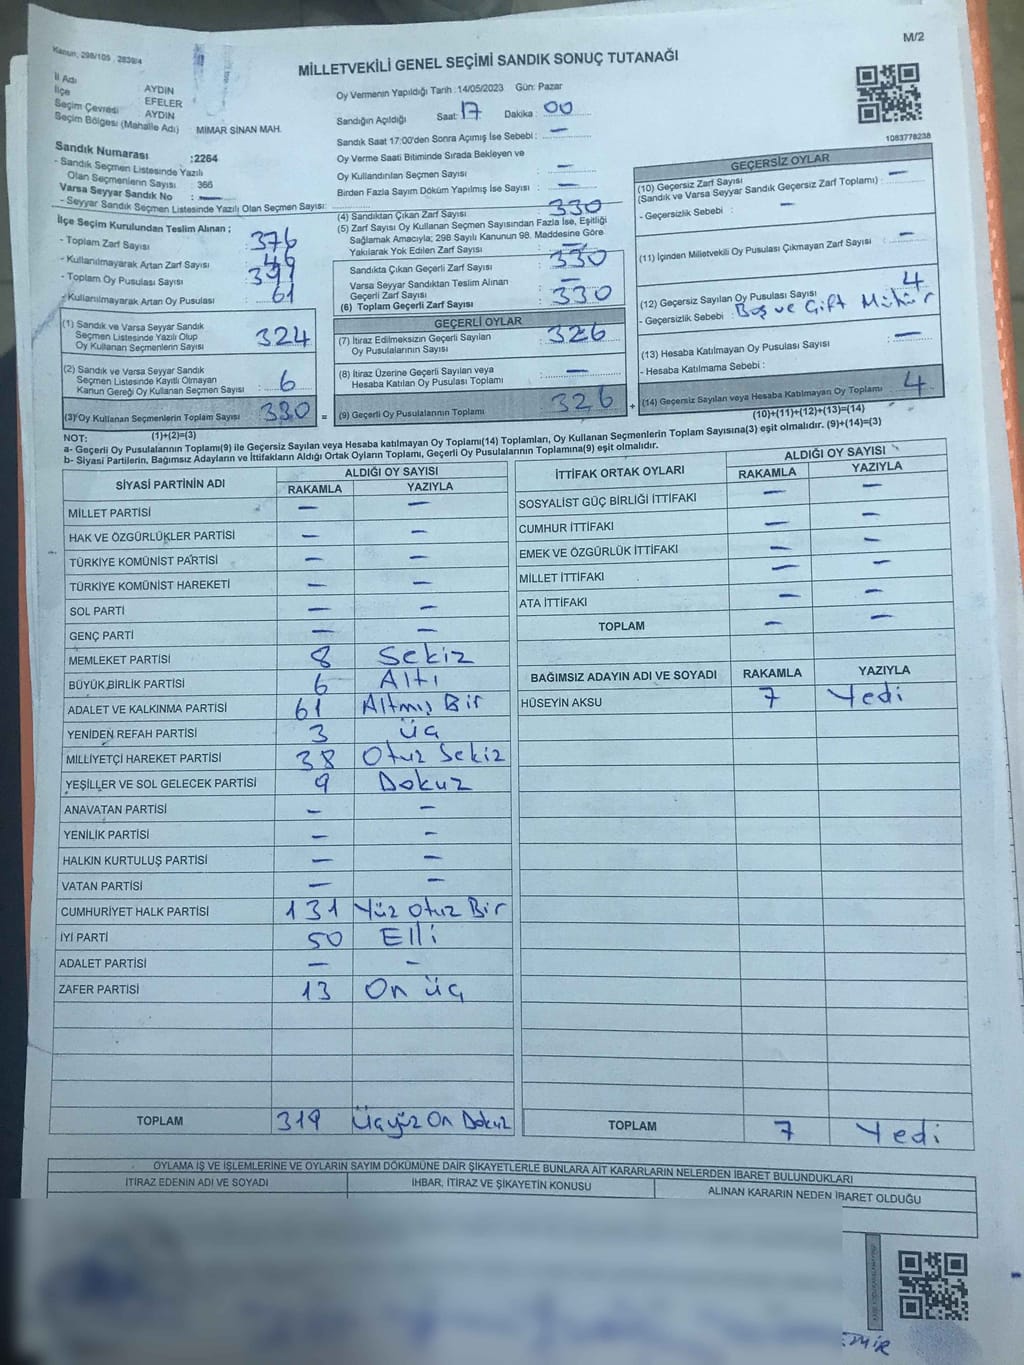 Kanun, 298/105 , 2839/4
M/2
MİLLETVEKİLİ GENEL SEÇİMİ SANDIK SONUÇ TUTANAĞI
İl Adı AYDIN
İlçe EFELER
Seçim Çevresi AYDIN
Seçim Bölgesi (Mahalle Adı) MİMAR SİNAN MAH.
Oy Vermenin Yapıldığı Tarih : 14/05/2023 Gün: Pazar
Sandığın Açıldığı Saat: 17 Dakika : 00
Sandık Saat 17:00'den Sonra Açımış İse Sebebi : —
Oy Verme Saati Bitiminde Sırada Bekleyen ve
Oy Kullandırılan Seçmen Sayısı : —
Birden Fazla Sayım Döküm Yapılmış İse Sayısı : —
1083778238
Sandık Numarası :2264
- Sandık Seçmen Listesinde Yazılı
Olan Seçmenlerin Sayısı : 366
Varsa Seyyar Sandık No : —
- Seyyar Sandık Seçmen Listesinde Yazılı Olan Seçmen Sayısı:
İlçe Seçim Kurulundan Teslim Alınan ;
- Toplam Zarf Sayısı : 376
- Kullanılmayarak Artan Zarf Sayısı : 46
- Toplam Oy Pusulası Sayısı :
- Kullanılmayarak Artan Oy Pusulası : 61
(1) Sandık ve Varsa Seyyar Sandık
Seçmen Listesinde Yazılı Olup
Oy Kullanan Seçmenlerin Sayısı : 324
(2) Sandık ve Varsa Seyyar Sandık
Seçmen Listesinde Kayıtlı Olmayan
Kanun Gereği Oy Kullanan Seçmen Sayısı : 6
(3) Oy Kullanan Seçmenlerin Toplam Sayısı : 330 =
(1)+(2)=(3)
(4) Sandıktan Çıkan Zarf Sayısı : 330
(5) Zarf Sayısı Oy Kullanan Seçmen Sayısından Fazla İse, Eşitliği
Sağlamak Amacıyla; 298 Sayılı Kanunun 98. Maddesine Göre
Yakılarak Yok Edilen Zarf Sayısı : —
Sandıkta Çıkan Geçerli Zarf Sayısı : 330
Varsa Seyyar Sandıktan Teslim Alınan
Geçerli Zarf Sayısı : —
(6) Toplam Geçerli Zarf Sayısı : 330
GEÇERLİ OYLAR
(7) İtiraz Edilmeksizin Geçerli Sayılan
Oy Pusulalarının Sayısı : 326
(8) İtiraz Üzerine Geçerli Sayılan veya
Hesaba Katılan Oy Pusulası Toplamı : —
(9) Geçerli Oy Pusulalarının Toplamı : 326 +
GEÇERSİZ OYLAR
(10) Geçersiz Zarf Sayısı
(Sandık ve Varsa Seyyar Sandık Geçersiz Zarf Toplamı) : —
- Geçersizlik Sebebi : —
(11) İçinden Milletvekili Oy Pusulası Çıkmayan Zarf Sayısı : —
(12) Geçersiz Sayılan Oy Pusulası Sayısı : 4
- Geçersizlik Sebebi : Boş ve Çift Mühür
(13) Hesaba Katılmayan Oy Pusulası Sayısı : —
- Hesaba Katılmama Sebebi :
(14) Geçersiz Sayılan veya Hesaba Katılmayan Oy Toplamı : 4
(10)+(11)+(12)+(13)=(14)
NOT:
a- Geçerli Oy Pusulalarının Toplamı(9) ile Geçersiz Sayılan veya Hesaba katılmayan Oy Toplamı(14) Toplamları, Oy Kullanan Seçmenlerin Toplam Sayısına(3) eşit olmalıdır. (9)+(14)=(3)
b- Siyasi Partilerin, Bağımsız Adayların ve İttifakların Aldığı Ortak Oyların Toplamı, Geçerli Oy Pusulalarının Toplamına(9) eşit olmalıdır.
SİYASİ PARTİNİN ADI ALDIĞI OY SAYISI
RAKAMLA YAZIYLA
MİLLET PARTİSİ — —
HAK VE ÖZGÜRLÜKLER PARTİSİ — —
TÜRKİYE KOMÜNİST PARTİSİ — —
TÜRKİYE KOMÜNİST HAREKETİ — —
SOL PARTİ — —
GENÇ PARTİ — —
MEMLEKET PARTİSİ 8 Sekiz
BÜYÜK BİRLİK PARTİSİ 6 Altı
ADALET VE KALKINMA PARTİSİ 61 Altmış Bir
YENİDEN REFAH PARTİSİ 3 Üç
MİLLİYETÇİ HAREKET PARTİSİ 38 Otuz Sekiz
YEŞİLLER VE SOL GELECEK PARTİSİ 9 Dokuz
ANAVATAN PARTİSİ — —
YENİLİK PARTİSİ — —
HALKIN KURTULUŞ PARTİSİ — —
VATAN PARTİSİ — —
CUMHURİYET HALK PARTİSİ 131 Yüz Otuz Bir
İYİ PARTİ 50 Elli
ADALET PARTİSİ — —
ZAFER PARTİSİ 13 On Üç
TOPLAM 319 Üçyüz On Dokuz
İTTİFAK ORTAK OYLARI ALDIĞI OY SAYISI
RAKAMLA YAZIYLA
SOSYALİST GÜÇ BİRLİĞİ İTTİFAKI — —
CUMHUR İTTİFAKI — —
EMEK VE ÖZGÜRLÜK İTTİFAKI — —
MİLLET İTTİFAKI — —
ATA İTTİFAKI — —
TOPLAM — —
BAĞIMSIZ ADAYIN ADI VE SOYADI RAKAMLA YAZIYLA
HÜSEYİN AKSU 7 Yedi
TOPLAM 7 Yedi
OYLAMA İŞ VE İŞLEMLERİNE VE OYLARIN SAYIM DÖKÜMÜNE DAİR ŞİKAYETLERLE BUNLARA AİT KARARLARIN NELERDEN İBARET BULUNDUKLARI
İTİRAZ EDENİN ADI VE SOYADI İHBAR, İTİRAZ VE ŞİKAYETİN KONUSU ALINAN KARARIN NEDEN İBARET OLDUĞU